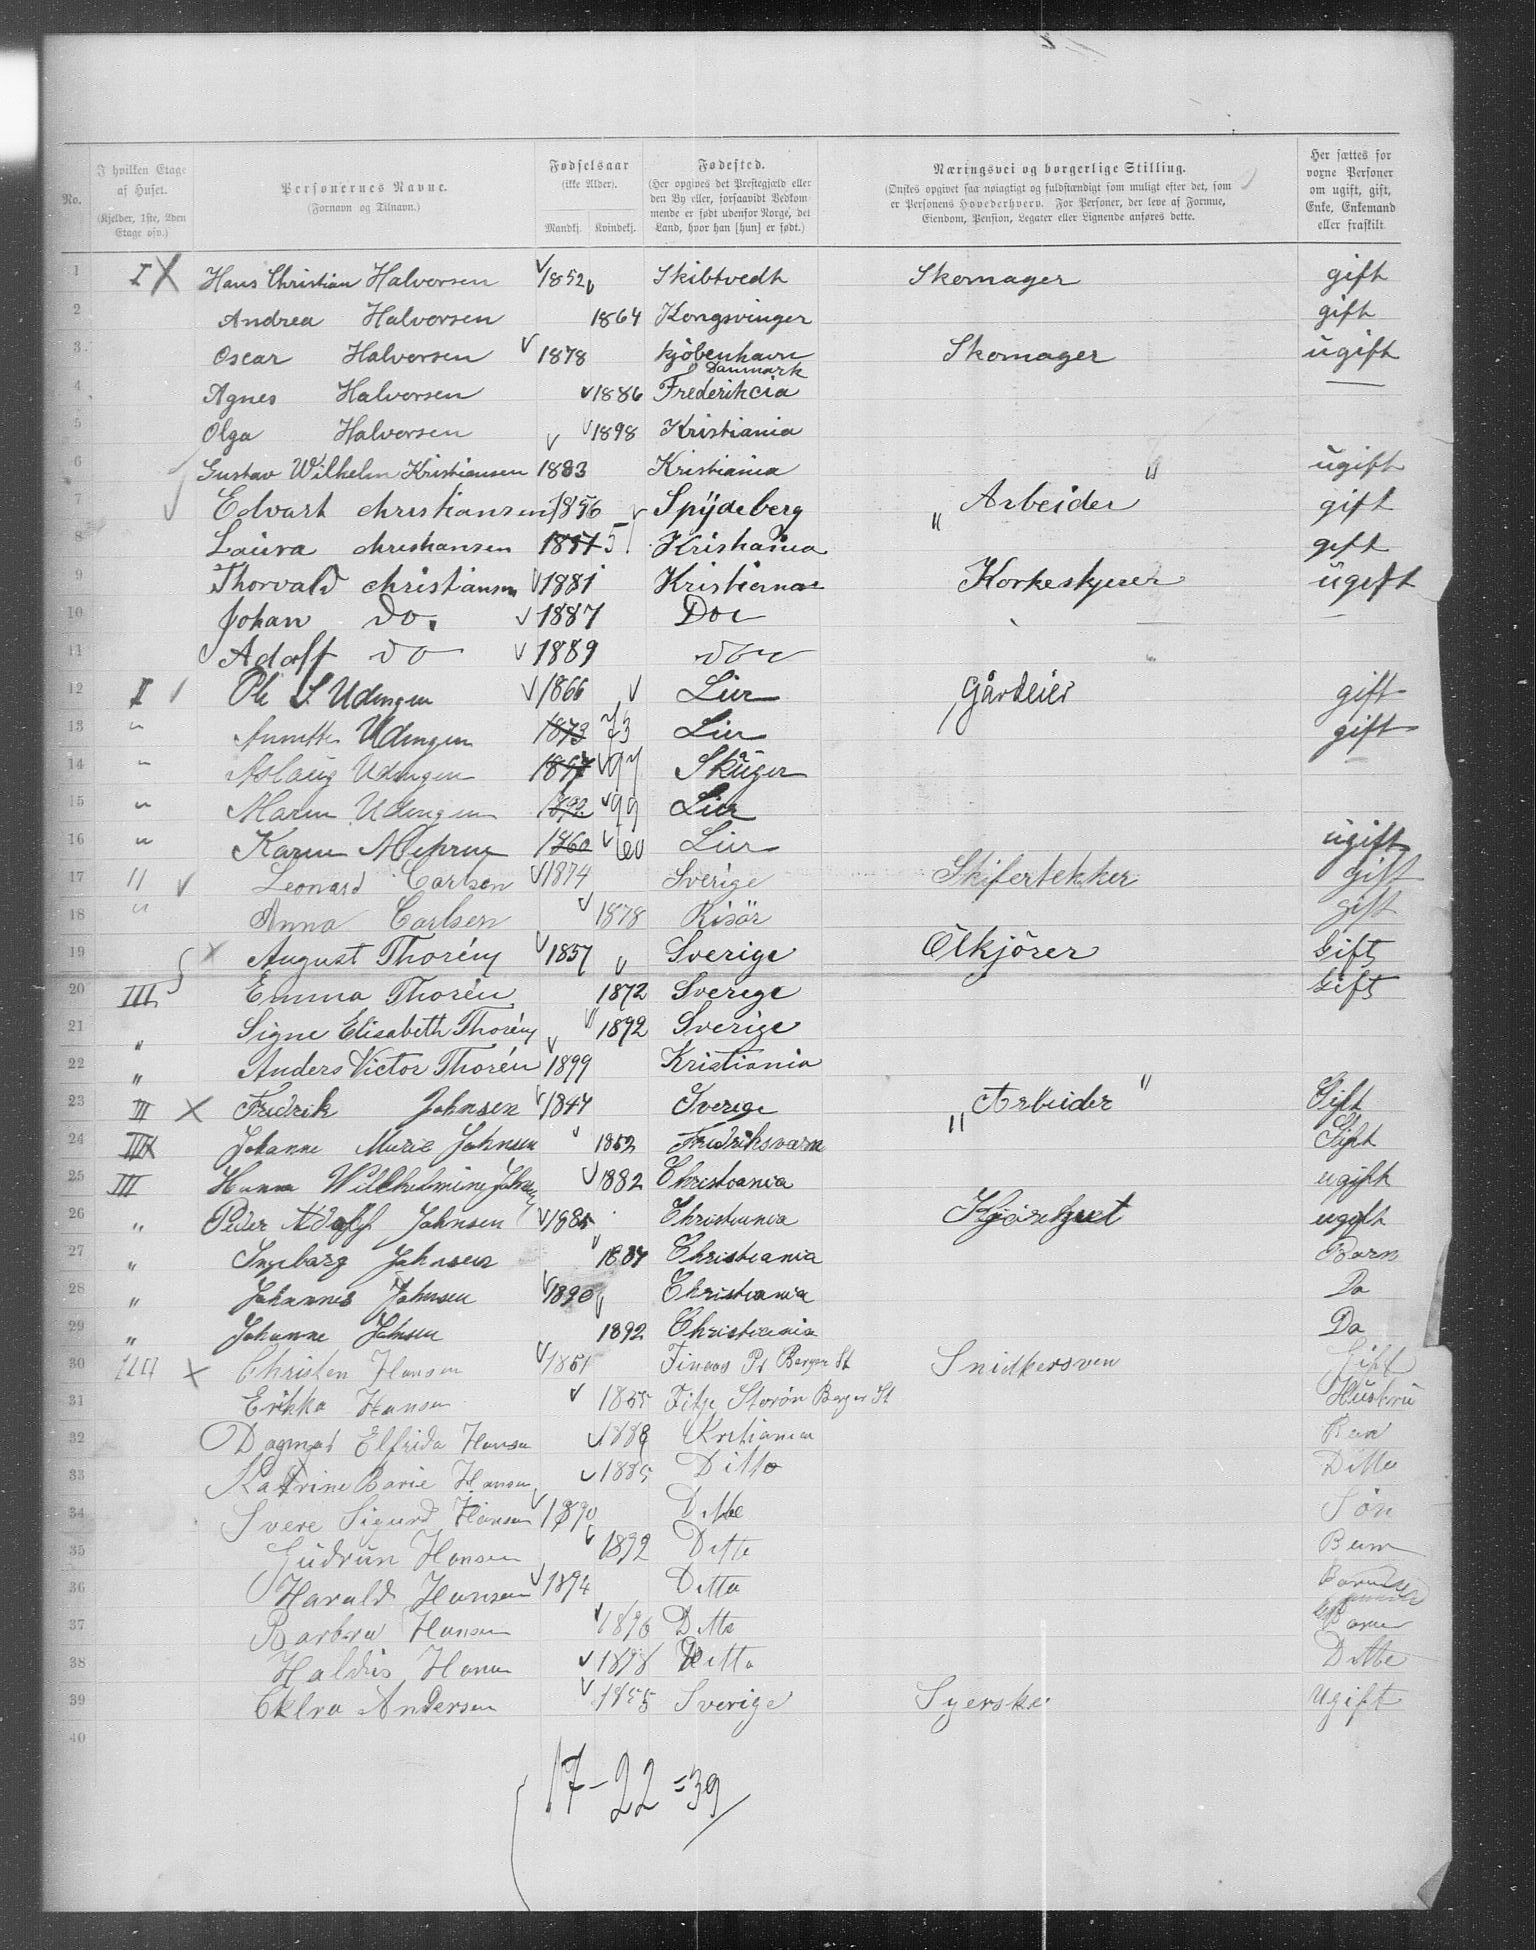 No. I hvilken Etage af Huset. (Kjelder, 1ste, 2den Etage osv.) Personernes Navne. (Fornavn og Tilnavn.) Fødselsaar (ikke Alder). Mandkj. Kvindekj. Fødested. (Her opgives det Prestegjæld eller den By eller, forsaavidt Vedkommende er født udenfor Norge, det Land, hvor han [hun] er født.) Næringsvei og borgerlige Stilling. (Ønskes opgivet saa nøiagtigt og fuldstændigt som muligt efter det, som er Personens Hovederhverv. For Personer, der leve af Formue, Eiendom, Pension, Legater eller Lignende anføres dette. Her sættes for voxne Personer om ugift, gift, Enke, Enkemand eller fraskilt.
1 I X Hans Christian Halvorsen 1852 Skibtvedt Skomager gift
2 Andrea Halvorsen 1864 Kongsvinger gift
3 Oscar Halvorsen 1878 Kjøbenhavn Danmark Skomager ugift
4 Agnes Halvorsen 1886 Frederikcia —
5 Olga Halvorsen 1898 Kristiania
6 Gustav Wilhelm Kristiansen 1883 Kristiania " ugift
7 Edvart christiansen 1856 Spydeberg „ Arbeider gift
8 Laura christiansen 1857 Kristiania gift
9 Thorvald christiansen 1881 Kristiania Korkeskjerer ugift
10 Johan Do. 1887 Do
11 Adolf do 1889 do
12 II Ole S. Udengen 1866 Lier Gårdeier gift
13 " Annette Udengen 1873 73 Lier gift
14 " Aslaug Udengen 1897 97 Skuger
15 " Maren Udengen 1892 99 Lier
16 " Karen 1860 60 Lier ugift
17 II Leonard Carlsen 1874 Sverige Skifertekker gift
18 " Anna Carlsen 1878 Risör gift
19 X August Thorén 1857 Sverige Ölkjörer Gift
20 III Emma Thorén 1872 Sverige Gift
21 „ Signe Elisabeth Thorén 1892 Sverige
22 „ Anders Victor Thorén 1899 Kristiania
23 III X Fredrik Johnsen 1847 Sverige „ Arbeider " Gift
24 III Johanne Marie Johnsen 1852 Fredriksværn Gift
25 III Hanna Willhelmine Johnsen 1882 Christiania ugift
26 „ Peder Adolf Johnsen 1885 Christiania Kjøregut ugift
27 „ Ingebarg Johnsen 1887 Christiania Barn
28 „ Johannes Johnsen 1890 Christiania Do
29 „ Johanne Johnsen 1892 Christiania Do
30 III X Christen Hansen 1851 Finaas Pr Berger St Snidkersven Gift
31 Erikka Hansen 1855 Fitje Storøn Berger St Hustru
32 Dagmar Elfrida Hansen 1888 Kristiania Barn
33 Katrine Barie Hansen 1885 Ditto Ditto
34 Svere Sigurd Hansen 1890 Ditto Søn
35 Gudrun Hansen 1892 Ditto Barn
36 Harald Hansen 1894 Ditto Barn
37 Barbra Hansen 1896 Ditto Barn
38 Haldis Hansen 1898 Ditto Ditto
39 Andersen 1855 Sverige Syerske Ugift
40
17 - 22 = 39